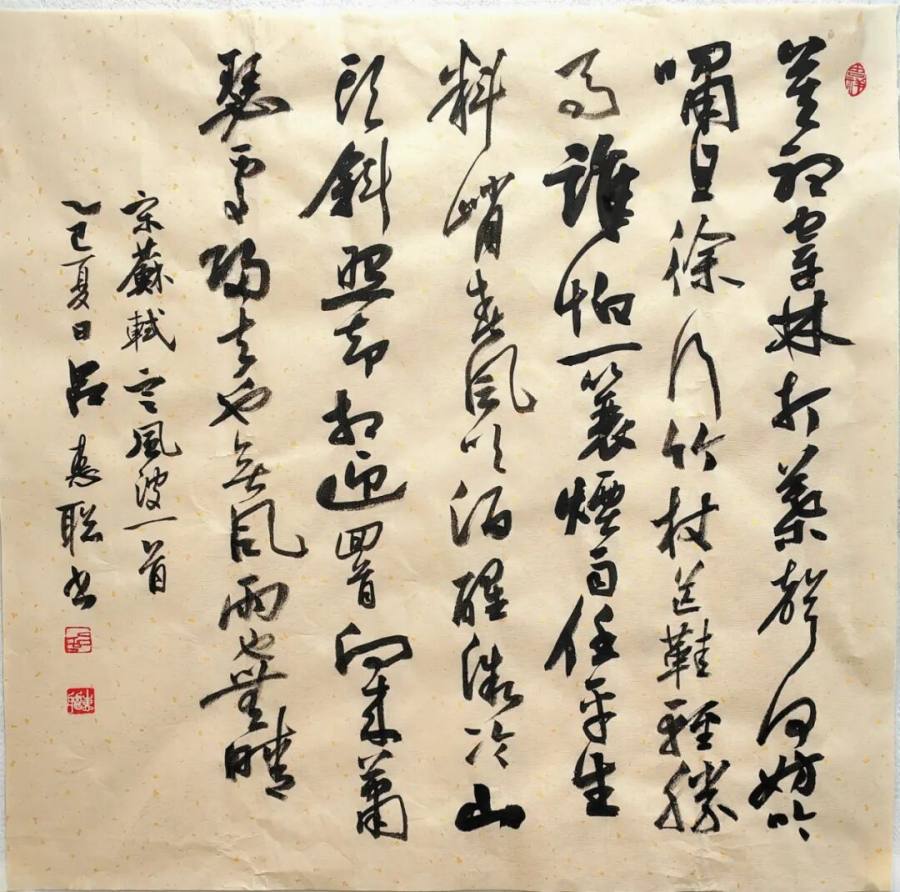 莫聽穿林打葉聲何妨吟
嘯且徐行竹杖芒鞋輕勝
馬誰怕一蓑煙雨任平生
料峭春風吹酒醒微冷山
頭斜照却相迎回首向來蕭
瑟處歸去也無風雨也無晴
宋蘇軾定風波一首
乙巳夏日呂惠聰書